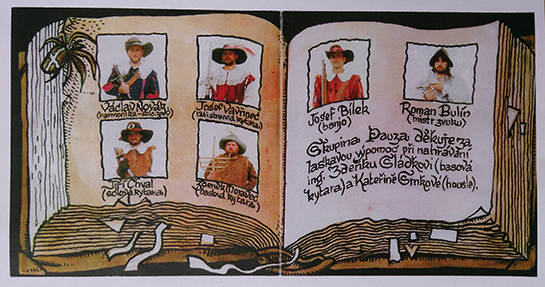 Václav Novák
(harmonika-sólo, zpěv)
Josef Vavřinec
(12ti strunná kytara)
Jiří Chval
(sólová kytara)
Zdeněk Moravec
(basová kytara)
Josef Bílek
(banjo)
Roman Bulín
(mistr zvuku)
Skupina Pauza děkuje za
laskavou výpomoc při nahrávání
ing. Zdeňku Sládkovi (basová
kytara) a Kateřině Srnkové (housle).